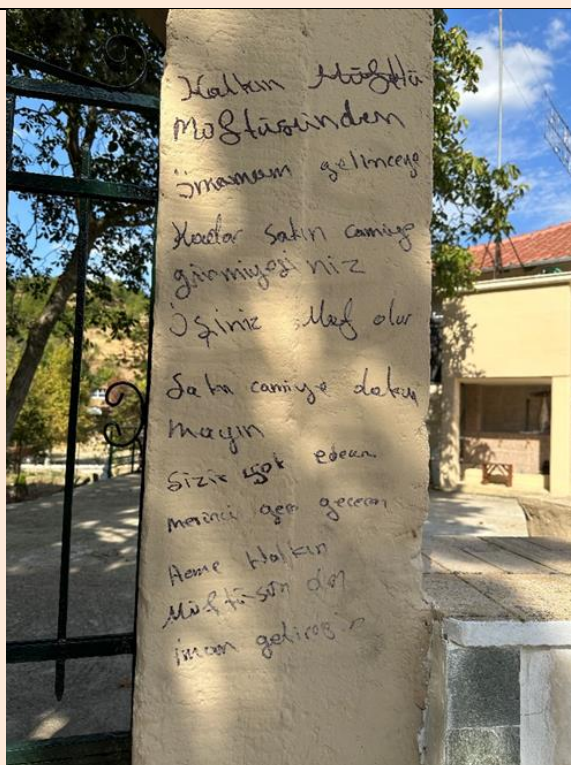 Halkın Müftü
Müftüsünden
imamım gelinceye
Kadar sakın camiye
girmiyesiniz
işiniz Mef olur
Sakın camiye dokun
mayın
Sizik yok ederim
geçerem
Heme Halkın
Müftüsün den
imam getiresin